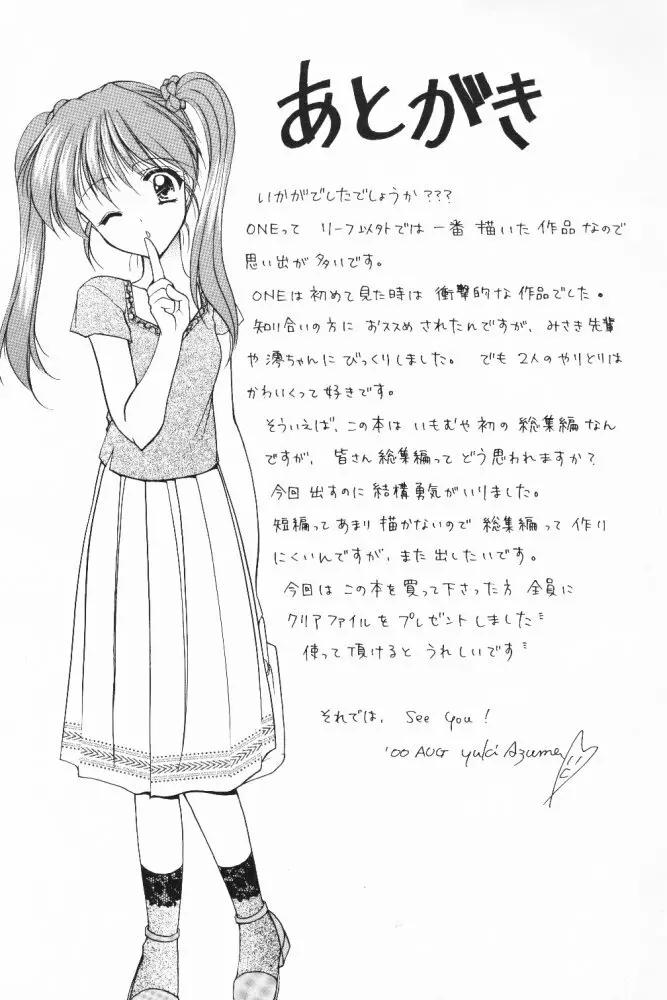 あとがき
いかがでしたでしょうか???
ONEって リーフ以外では 一番 描いた 作品 なので
思い出が 多いです。
ONEは 初めて 見た 時は 衝撃的な 作品でした。
知り合いの方に おススめ されたんですが、みさき先輩
や 澪ちゃんに びっくりしました。 でも 2人の やりとりは
かわいくって 好きです。
そういえば、この本は いもむや 初の 総集編 なん
ですが、 皆さん 総集編って どう思われますか?
今回 出すのに 結構 勇気が いりました。
短編って あまり 描かないので 総集編って 作り
にくいんですが、また 出したいです。
今回は この本を 買って 下さった方 全員に
クリアファイルを プレゼント しました
使って 頂けると うれしいです
それでは、 See you!
'00 AUG yuki Azuma